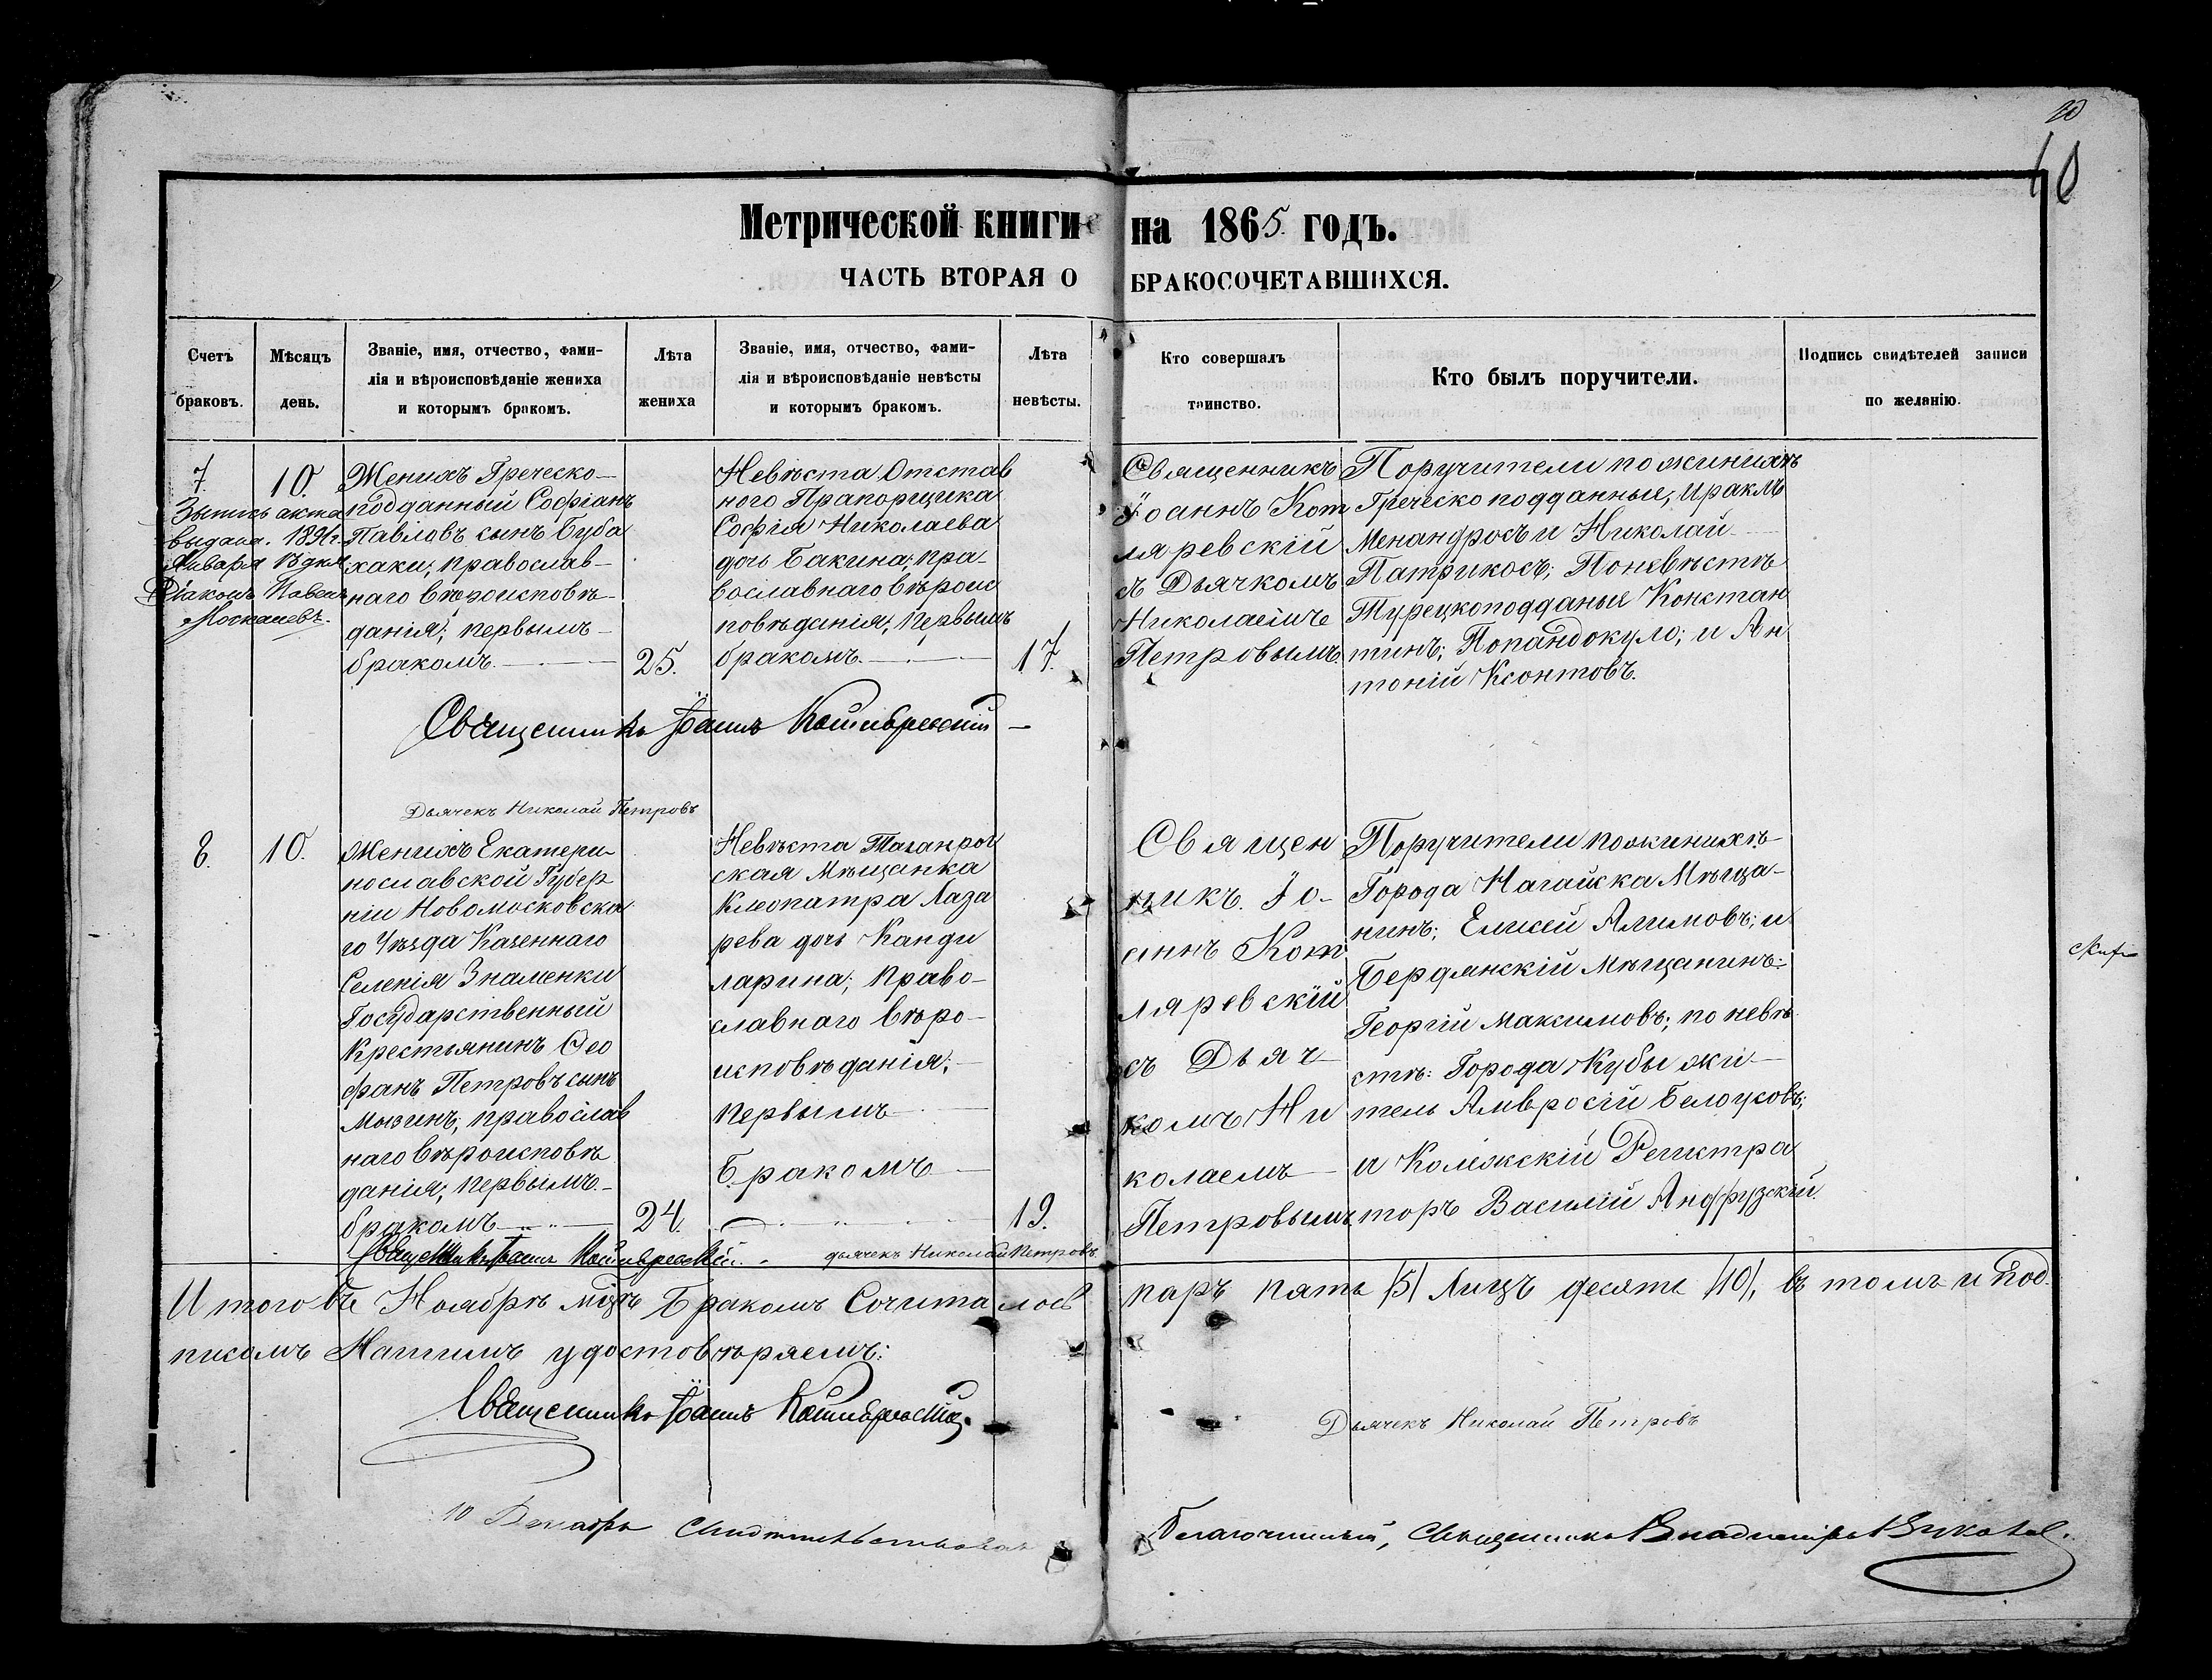 10
10
Метрической книги на 1865 годъ.
ЧАСТЬ ВТОРАЯ О БРАКОСОЧЕТАВШИХСЯ.
Счетъ браковъ.
Мѣсяцъ день.
Званіе, имя, отчество, фами-
лія и вѣроисповѣданіе жениха
и которымъ бракомъ.
Лѣта
жениха
Званіе, имя, отчество, фами-
лія и вѣроисповѣданіе невѣсты
и которымъ бракомъ.
Лѣта
невѣсты.
Кто совершалъ
таинство.
Кто былъ поручители.
Подпись свидѣтелей записи
по желанію.
7.
выдана. 1891 г.
Января
Діаконъ Павелъ
10.
Женихъ Греческо-
подданный Софіанъ
Павловъ сынъ Буба
хаки; православ-
наго вѣроисповѣ-
данія; первымъ
бракомъ.
25.
Невѣста Отстав
ного Прапорщика
Софія Николаева
дочь Бакина; пра-
вославнаго вѣроис
повѣданія; первымъ
бракомъ.
17.
Священникъ
Іоаннъ Кот
ляревскій
съ Дьячкомъ
Николаемъ
Петровымъ
Поручители по жинихѣ
Греческо подданные, Иракл
Менандросъ и Николай
Патрикосъ; По невѣстѣ
Турецкоподданые Констан
тинъ; Попандокуло; и Ан
тоній Ксонтовъ.
Священникъ Іоаннъ Котляревскій
Дьячекъ Николай Петровъ
8.
10.
Женихъ Екатери-
нославской Губер
ніи Новомосковска
го Уѣзда Казеннаго
Селенія Знаменки
Государственный
Крестьянинъ Ѳео
фанъ Петровъ сынъ
Мозинъ, православ
наго вѣроисповѣ
данія; первымъ
бракомъ
24.
Невѣста Таганрог
ская Мѣщанка
Клеопатра Лаза
рева дочь Канди
ларина; право-
славнаго вѣро-
исповѣданія;
первымъ
Бракомъ
19.
Священ
никъ Іо-
аннъ Кот
ляревскій
съ Дьяч
комъ Ни
колаемъ
Петровымъ
Поручители по жинихѣ
Города Нагайска Мѣща-
нинъ; Елисей Алимовъ; и
Бердянскій Мѣщанинъ:
Георгій Максимовъ; по невѣ
стѣ: Города Кубы жи-
тель Амвросій Белоусовъ;
и Колежскій Регистра
торъ Василій Анффузскій.
Священникъ Іоаннъ Котляревскій.
дьячекъ Николай Петровъ.
Итого въ Ноябрѣ мцѣ Бракомъ Сочиталось паръ пять /5/ Лицъ десять /10/, въ томъ и под
писомъ Нашимъ удостовѣряемъ:
Священникъ Іоаннъ Котляревскій.
Дьячекъ Николай Петровъ
10 Декабря Свидетельствовалъ Благочинный, Священникъ Владимиръ